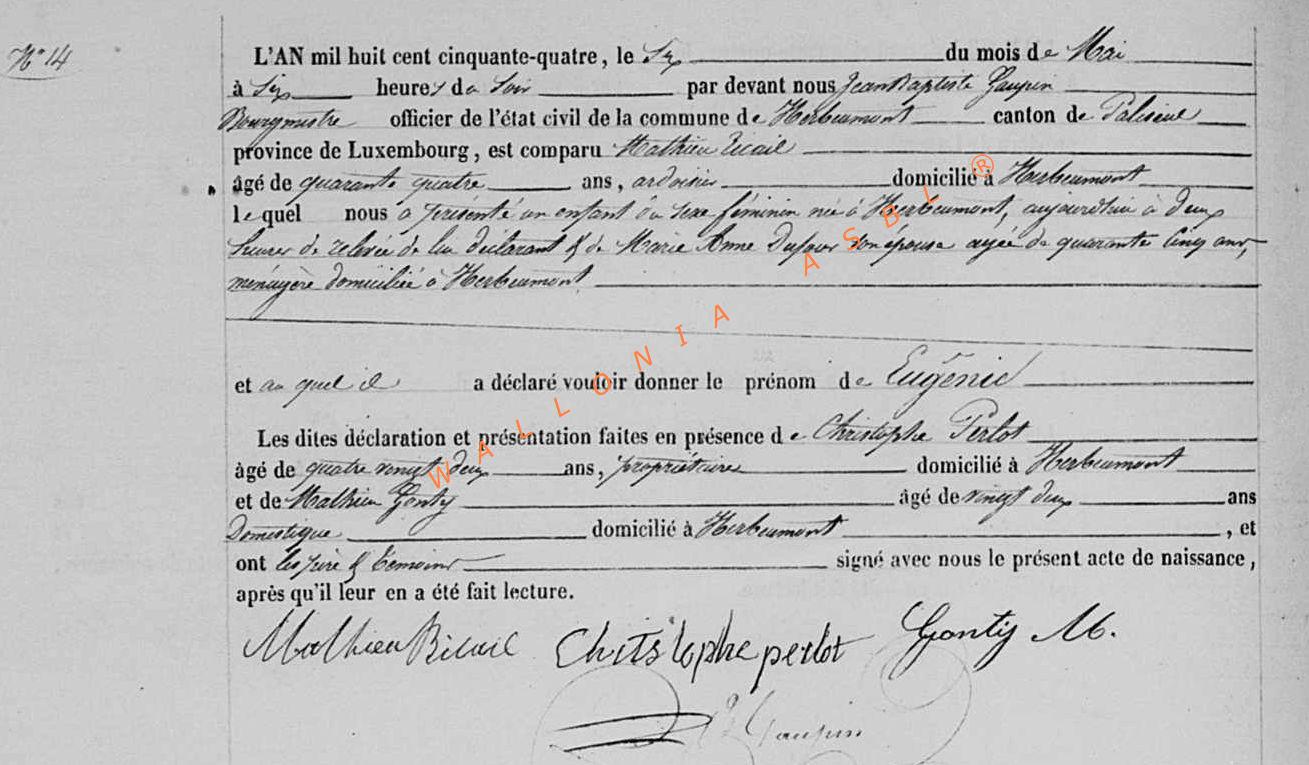 N° 14
L'AN mil huit cent cinquante-quatre, le Six du mois de Mai
à Six heures du Soir par devant nous Jean Baptiste Gaupin
Bourgmestre officier de l'état civil de la commune de Herbeumont canton de Paliseul
province de Luxembourg, est comparu Mathieu Ricail
âgé de quarante quatre ans, ardoisier domicilié à Herbeumont
lequel nous a présenté un enfant du sexe féminin née à Herbeumont, aujourd'hui à deux
heures de relevée de lui déclarant & de Marie Anne Dufour son épouse agée de quarante cinq ans,
ménagère domiciliée à Herbeumont
et au quel il a déclaré vouloir donner le prénom de Eugénie
Les dites déclaration et présentation faites en présence de Christophe Perlot
âgé de quatre vingt deux ans, propriétaire domicilié à Herbeumont
et de Mathieu Gonty âgé de vingt deux ans
Domestique domicilié à Herbeumont, et
ont les père & témoins signé avec nous le présent acte de naissance,
après qu'il leur en a été fait lecture.
Mathieu Ricail Christophe perlot Gonty M.
Gaupin
WALLONIA ASBL ®